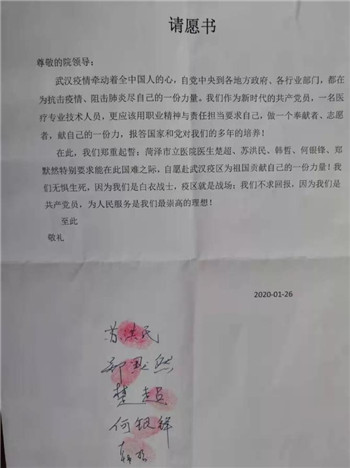 请愿书
尊敬的院领导：
武汉疫情牵动着全中国人的心，自党中央到各地方政府、各行业部门，都在
为抗击疫情、阻击肺炎尽自己的一份力量。我们作为新时代的共产党员，一名医
疗专业技术人员，更应该用职业精神与责任担当要求自己，做一个奉献者、志愿
者，献自己的一份力，报答国家和党对我们的多年的培养！
在此，我们郑重起誓：菏泽市立医院医生楚超、苏洪民、韩哲、何银锋、郑
默然特别要求能在此国难之际，自愿赴武汉疫区为祖国贡献自己的一份力量！我
们无惧生死，因为我们是白衣战士，疫区就是战场；我们不求回报，因为我们是
共产党员，为人民服务是我们最崇高的理想！
至此
敬礼
2020-01-26
苏洪民
郑默然
楚超
何银锋
韩哲